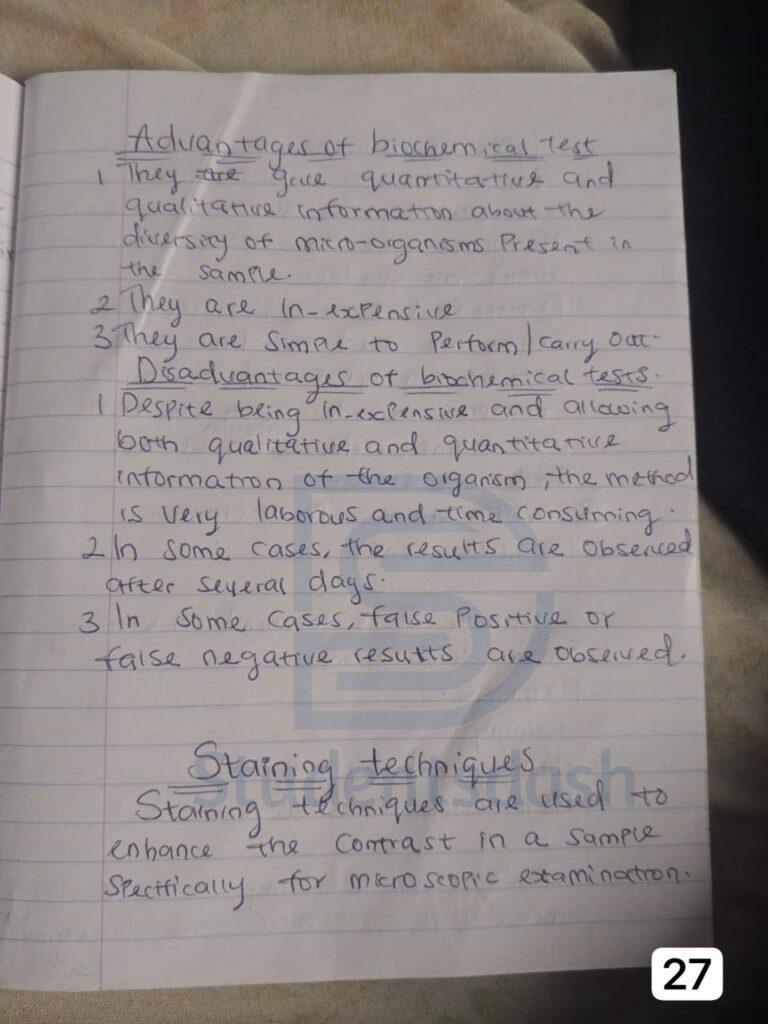 Advantages of biochemical test
1 They are give quantitative and
qualitative information about the
diversity of micro-organisms Present in
the sample.
2 They are in-expensive
3 They are Simple to Perform/Carry out.
Disadvantages of biochemical tests.
1 Despite being in-expensive and allowing
both qualitative and quantitative
information of the organism, the method
is very laborous and time consuming.
2 In some cases, the results are observed
after several days.
3 In some cases, false Positive or
false negative results are observed.
Staining techniques
Staining techniques are used to
enhance the contrast in a sample
Specifically for microscopic examination.
27